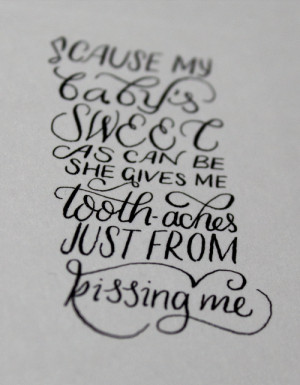 'CAUSE MY
baby's
SWEET
AS CAN BE
SHE GIVES ME
tooth-aches
JUST FROM
kissing me